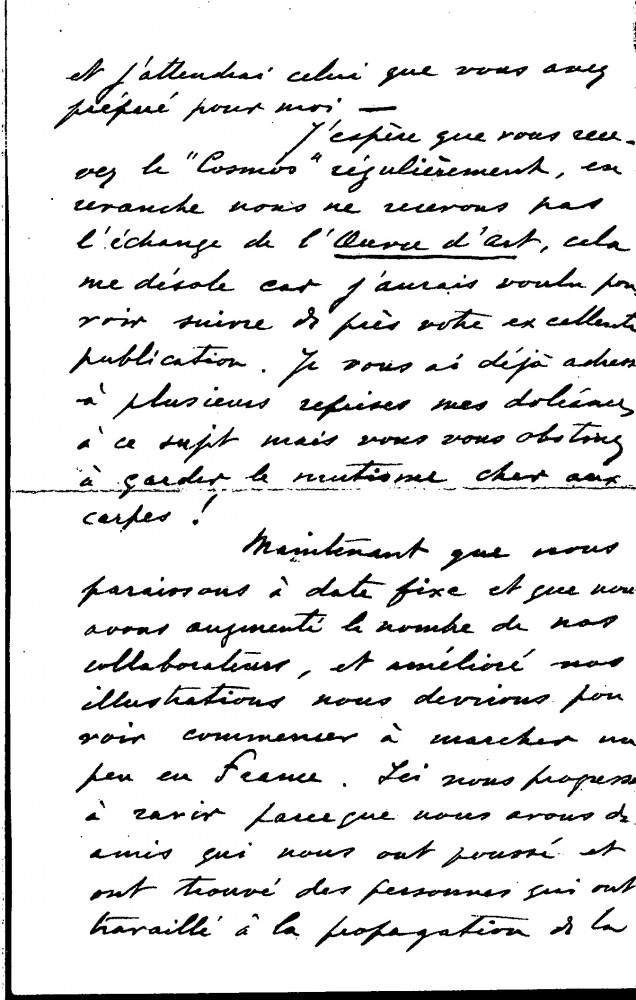 et j'attendrai celui que vous avez
préparé pour moi —
J'espère que vous rece-
vez le "Cosmos" régulièrement, en
revanche nous ne recevons pas
l'échange de l'Œuvre d'Art, cela
me désole car j'aurais voulu pou
voir suivre de près votre excellente
publication. Je vous ai déjà adress
à plusieurs reprises mes doléances
à ce sujet mais vous vous obstinez
à garder le mutisme cher aux
carpes !
Maintenant que nous
paraissons à date fixe et que nou
avons augmenté le nombre de nos
collaborateurs, et amélioré nos
illustrations nous devrions pou
voir commencer à marcher un
peu en France. Ici nous progresso
à ravir parceque nous avons de
amis qui nous ont poussé et
ont trouvé des personnes qui ont
travaillé à la propagation de la